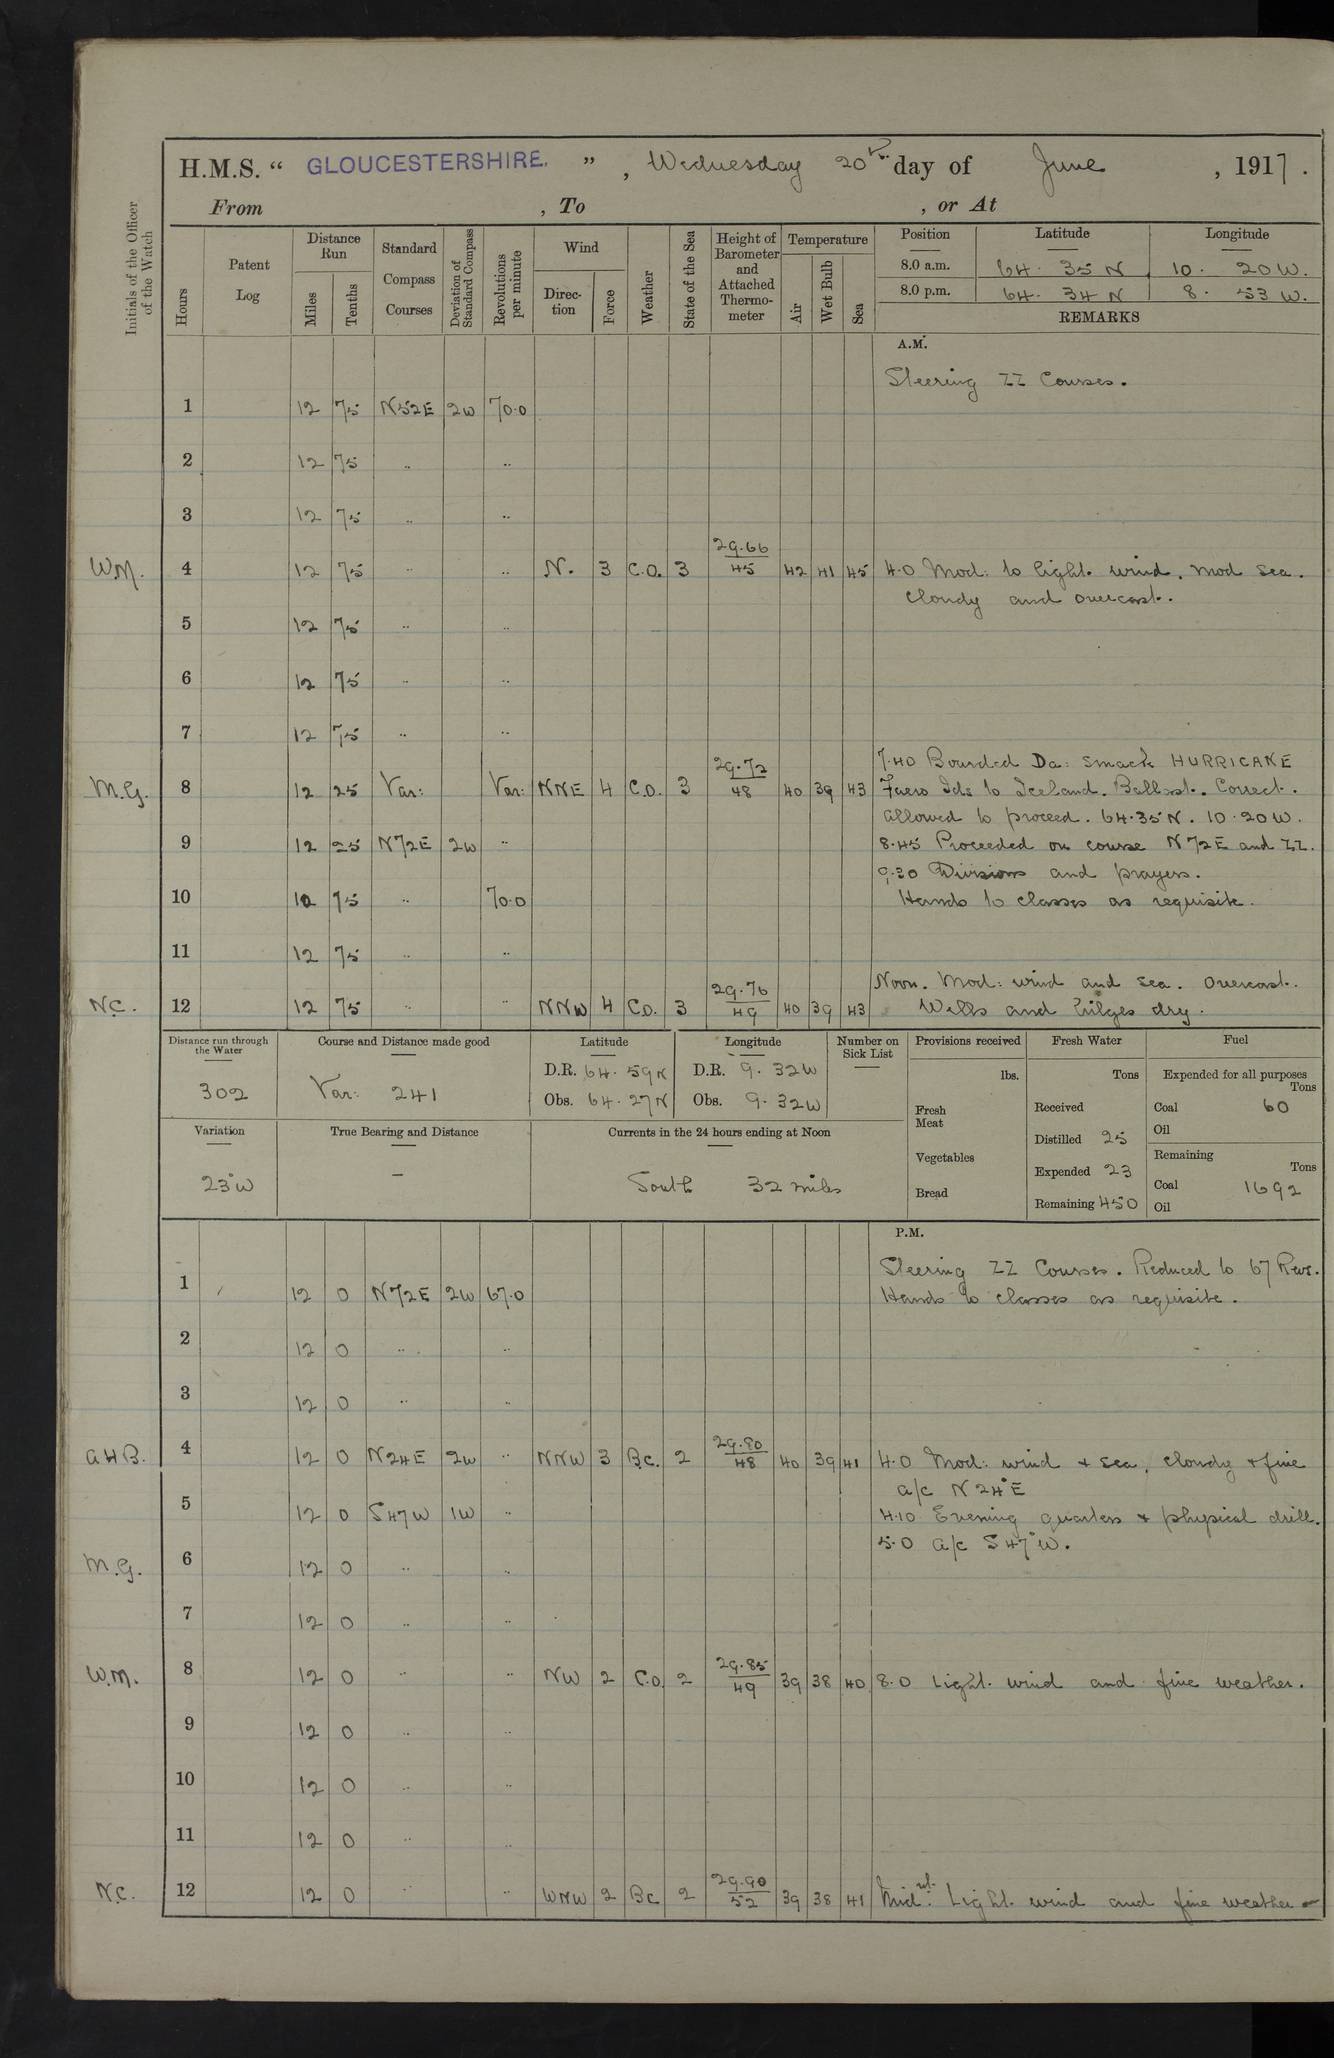 H.M.S. “ GLOUCESTERSHIRE. ”, Wednesday 20th day of June, 1917.
From , To , or At
Initials of the Officer of the Watch
Hours Patent Log Distance Run Miles Tenths Standard Compass Courses Deviation of Standard Compass Revolutions per minute Wind Direc-tion Force Weather State of the Sea Height of Barometer and Attached Thermo-meter Temperature Air Wet Bulb Sea
Position Latitude Longitude
8.0 a.m. 64. 35 N 10. 20 W.
8.0 p.m. 64. 34 N 8. 53 W.
REMARKS
A.M.
Steering ZZ Courses.
1 12 75 N52E 2W 70.0
2 12 75 .. ..
3 12 75 .. ..
W.M. 4 12 75 .. .. N. 3 C.O. 3 29.66 45 42 41 45 4.0 Mod: to light. wind. mod sea.
cloudy and overcast.
5 12 75 .. ..
6 12 75 .. ..
7 12 75 .. ..
7.40 Boarded Da: smack HURRICANE
M.G. 8 12 25 Var: Var: NNE 4 C.O. 3 29.72 48 40 39 43 Faero Ids to Iceland. Ballast. Correct.
allowed to proceed. 64.35N. 10.20W.
9 12 25 N72E 2W .. 8.45 Proceeded on course N72E and ZZ.
9.30 Divisions and prayers.
10 12 75 .. 70.0 Hands to classes as requisite.
11 12 75 .. ..
Noon. Mod: wind and sea. Overcast.
N.C. 12 12 75 .. .. NNW 4 C.O. 3 29.76 49 40 39 43 Wells and bilges dry.
Distance run through the Water Course and Distance made good Latitude Longitude Number on Sick List Provisions received Fresh Water Fuel
302 Var: 241
D.R. 64. 59N D.R. 9. 32W
Obs. 64. 27N Obs. 9. 32W
lbs. Tons Expended for all purposes Tons
Fresh Meat Received Coal 60
Distilled 25 Oil
Variation True Bearing and Distance Currents in the 24 hours ending at Noon
23°W – South 32 miles
Vegetables Expended 23 Remaining Tons
Bread Remaining 450 Coal 1692
Oil
P.M.
Steering ZZ Courses. Reduced to 67 Revs.
1 12 0 N72E 2W 67.0 Hands to classes as requisite.
2 12 0 .. ..
3 12 0 .. ..
A H B. 4 12 0 N24E 2W .. NNW 3 B.C. 2 29.80 48 40 39 41 4.0 Mod: wind + sea, cloudy + fine
a/c N 24°E
5 12 0 S47W 1W .. 4.10 Evening quarters + physical drill.
5.0 a/c S 47°W.
M.G. 6 12 0 .. ..
7 12 0 .. ..
W.M. 8 12 0 .. .. NW 2 C.O. 2 29.85 49 39 38 40 8.0 Light. wind and fine weather.
9 12 0 .. ..
10 12 0 .. ..
11 12 0 .. ..
N.C. 12 12 0 .. .. WNW 2 BC 2 29.90 52 39 38 41 Midnt. Light. wind and fine weather